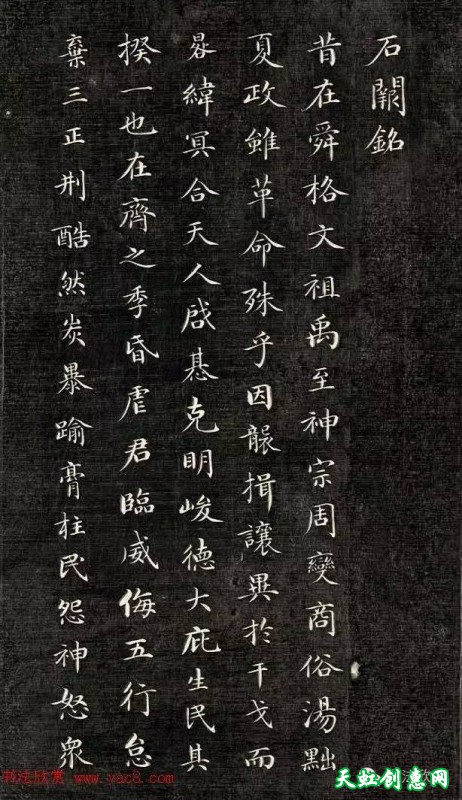 石闕銘
昔在舜格文祖禹至神宗周變商俗湯黜
夏政雖革命殊乎因襲揖讓異於干戈而
晷緯冥合天人啟惎克明峻德大庇生民其
揆一也在齊之季昏虐君臨威侮五行怠
棄三正刑酷然炭暴踰膏柱民怨神怒眾
书法欣赏 www.yac8.com
天虹创意网